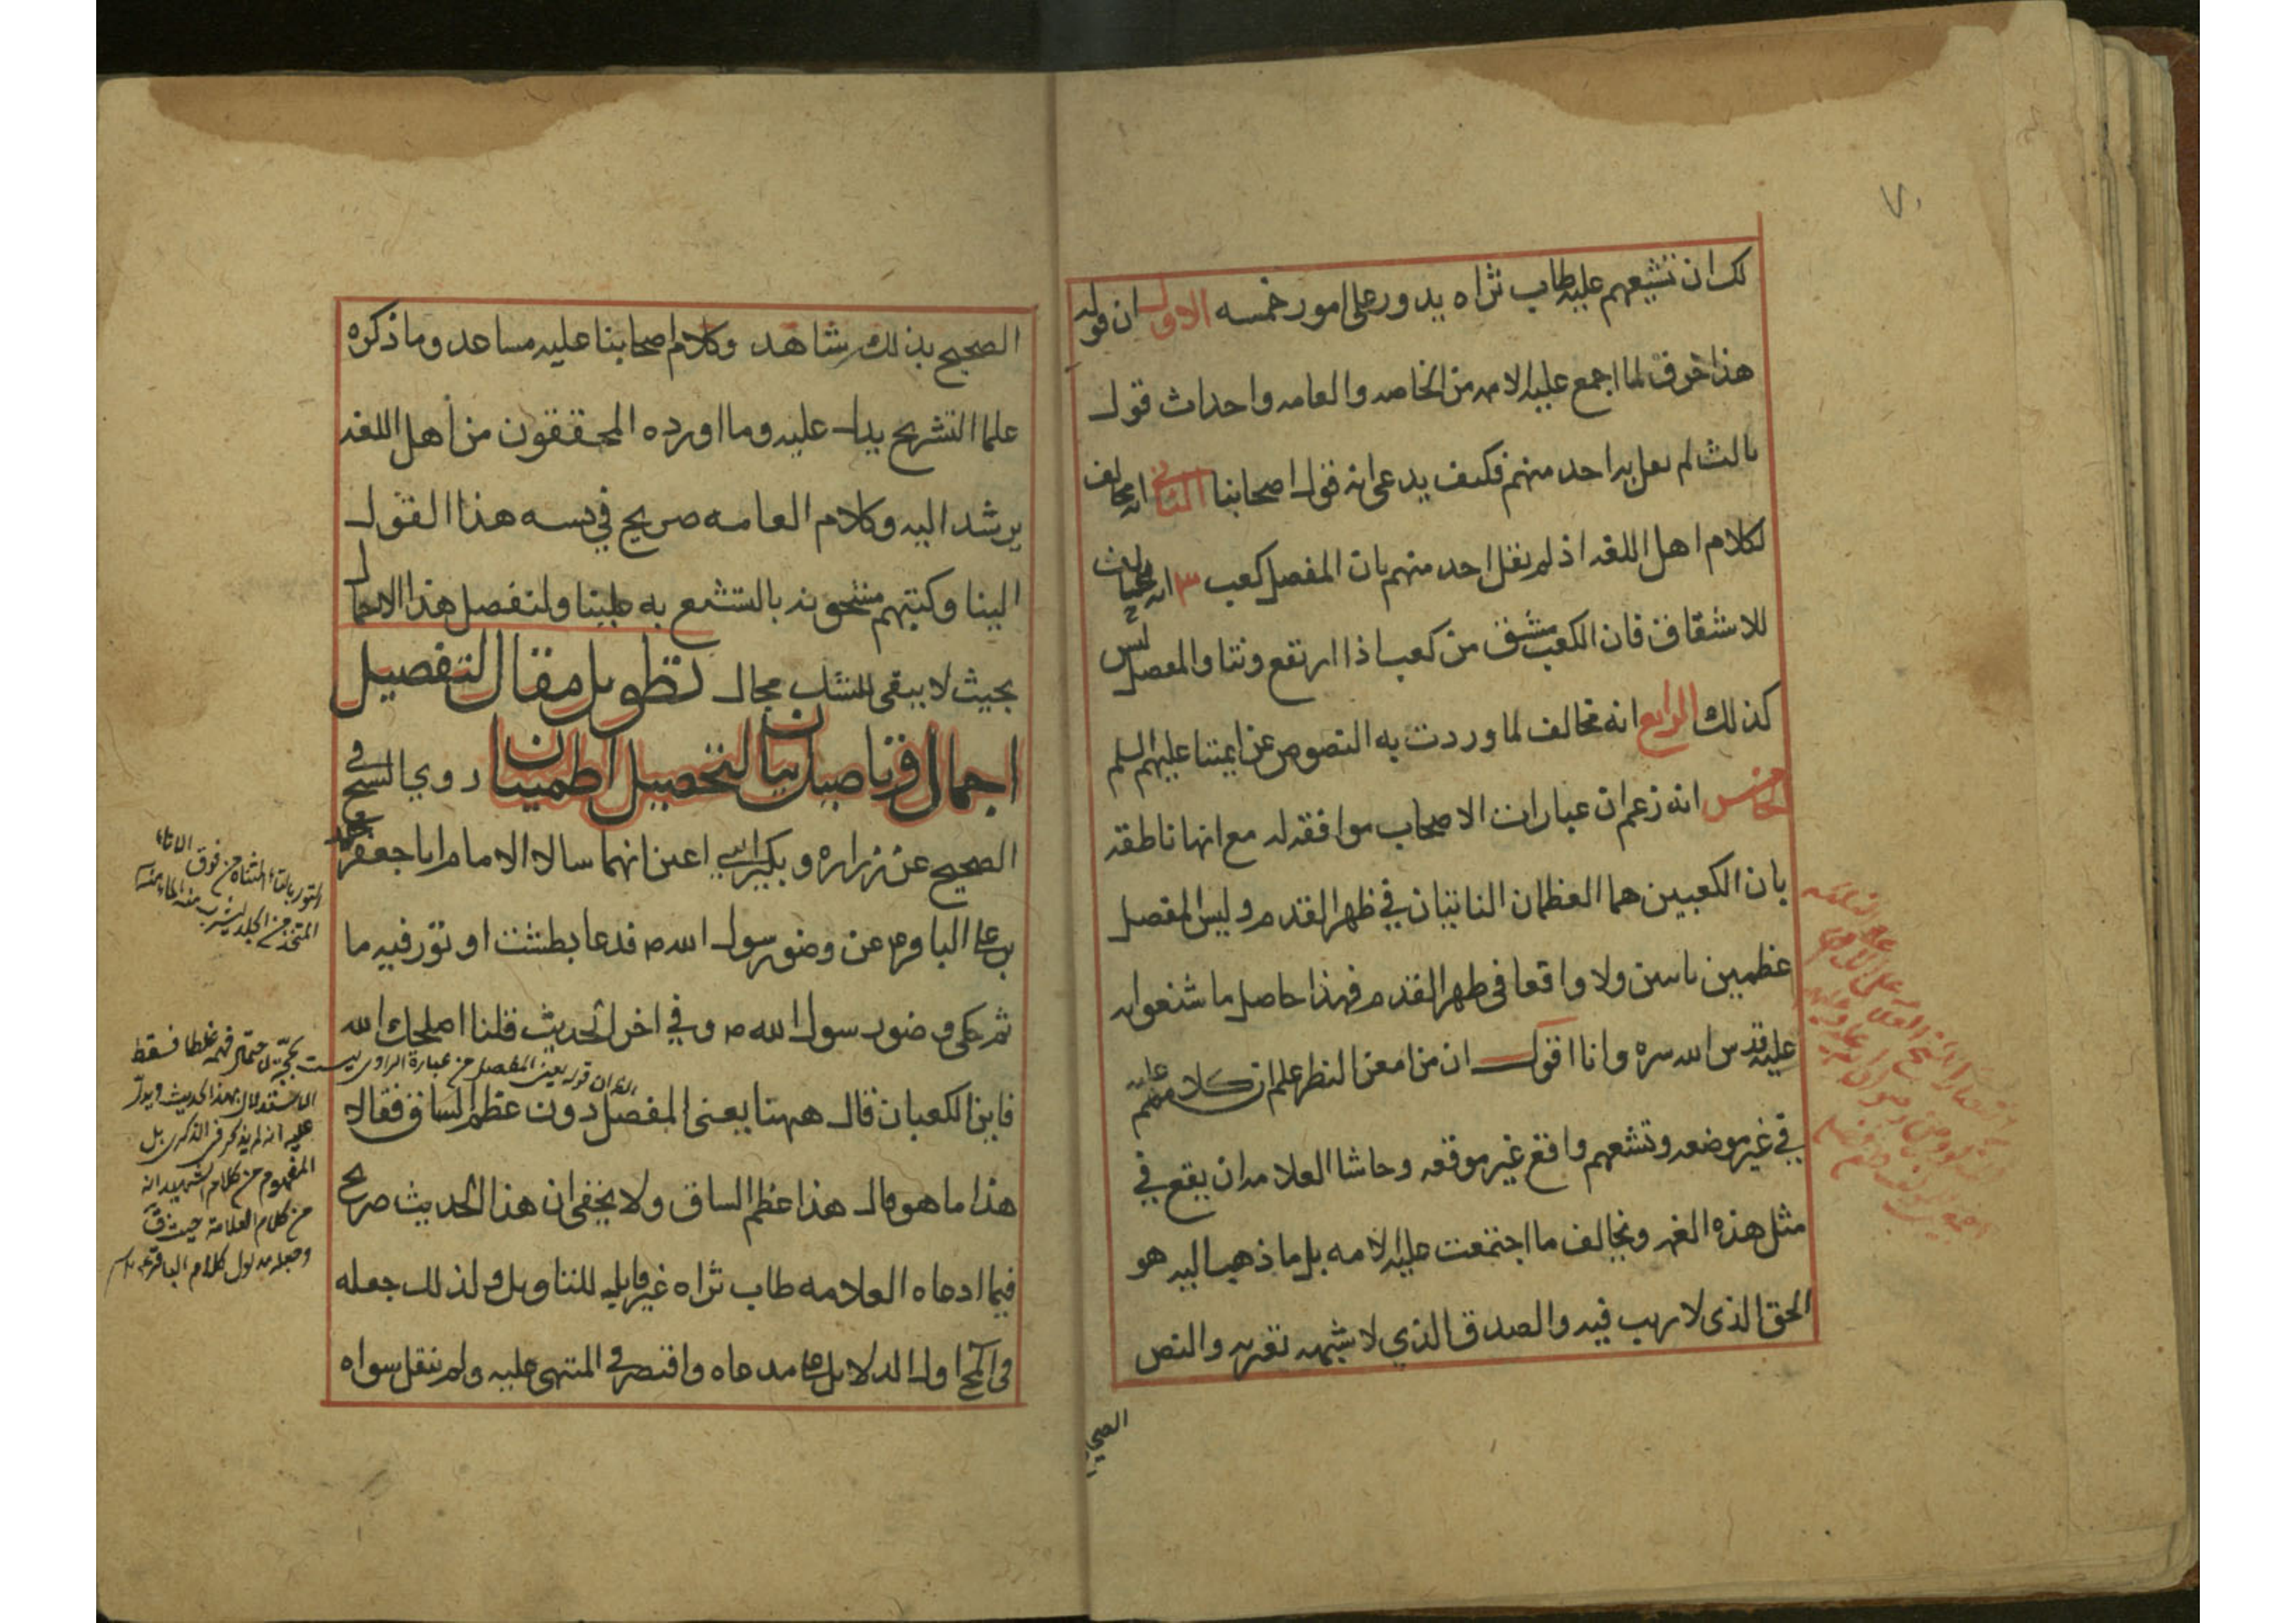 لك ان تشيعهم عليه طاب ثراه يدور على امور خمسه الاول ان قوله
هذا خرق لما اجمع عليه الامه من الخاصه والعامه واحداث قول
ثالث لم يقل به احد منهم فكيف يدعى انه قول اصحابنا الثانى انه مخالف
لكلام اهل اللغه اذ لم يقل احد منهم بان المفصل كعب ٣ انه مخالف
للاشتقاق فان الكعب مشتق من كعب اذا ارتفع ونتا والمفصل ليس
كذلك الرابع انه مخالف لما وردت به النصوص عن ايمتنا عليهم السلم
الخامس انه زعم ان عبارات الاصحاب موافقه له مع انها ناطقه
بان الكعبين هما العظمان الناتيان في ظهر القدم وليس المفصل
عظمين ناتيين ولا واقعا فى ظهر القدم فهذا حاصل ما شنعوا به
عليه قدس الله سره وانا اقول ان من امعن النظر علم ان كلامهم عليه
في غير موضعه وتشنعهم واقع غير موقعه وحاشا العلامه ان يقع في
مثل هذه ويخالف ما اجتمعت عليه الامه بل ما ذهب اليه هو
الحق الذى لا ريب فيه والصدق الذي لا شبهه تعتريه والنص
الصحيح
الصحيح بذلك شاهد وكلام اصحابنا عليه مساعد وما ذكره
علما التشريح يدل عليه وما اورده المحققون من أهل اللغه
يرشد اليه وكلام العامه صريح في نسبه هذا القول
الينا وكتبهم مشحونه بالتشنيع به علينا ولنفصل هذا الاجمال
بحيث لا يبقى للشك مجال تطويل مقال لتفصيل
اجمال وتاصيل بيان لتحصيل اطمينان روى الشيخ في
الصحيح عن زراره وبكير ابنى اعين انهما سالا الامام ابا جعفر محمد
بن على الباقر ع عن وضو رسول الله ص فدعا بطشت او تور فيه ما
ثم حكى وضور سول الله ص وفي اخر الحديث قلنا اصلحك الله
فاين الكعبان قال ههنا يعنى المفصل دون عظم الساق فقالا
هذا ما هو قال هذا عظم الساق ولا يخفى ان هذا الحديث صريح
فيما ادعاه العلامه طاب ثراه غير قابل للتاويل ولذلك جعله
فى اول الدلايل على مدعاه واقتصر في المنتهى عليه ولم ينقل سواه
التور بالتاء المثناه من فوق الاناء
المتخذ من الجلد يشرب منه الماء منه
ان قوله يعنى المفصل من عبارة الراوى ليست بحجة لاحتمال فهمه غلطا فسقط
الاستدلال بهذا الحديث ويدل
عليه انه لم يذكر فى الذكرى بل
المفهوم من كلام الشهيد انه
من كلام العلامة حيث ق
وجعله مدلول كلام الباقر ع